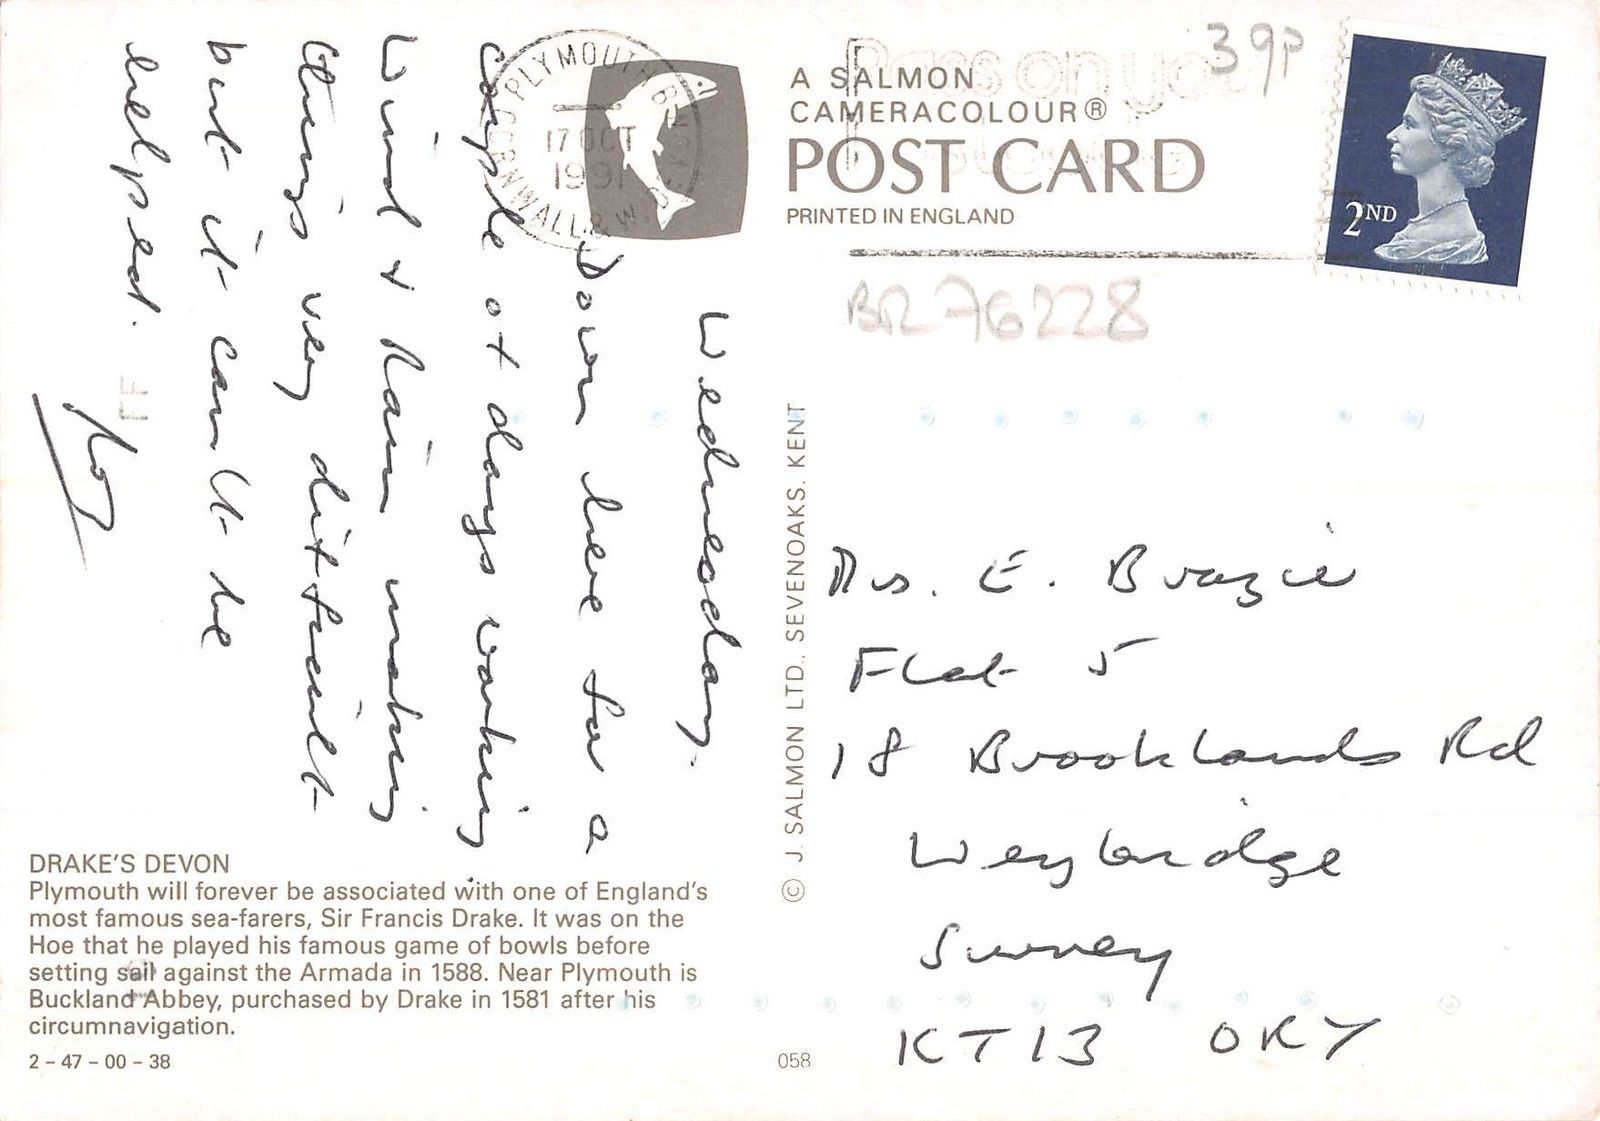 Wednesday.
Down here for a
couple of days working
Wind & Rain making
things very difficult
but it can't be
helped.
PLYMOUTH
CORNWALL & W.
17 OCT
1991
A SALMON
CAMERACOLOUR®
POST CARD
PRINTED IN ENGLAND
Pass on you
39p
2ND
BR76228
Mrs. E. Brazie
Flat 5
18 Brooklands Rd
Weybridge
Surrey
KT13 0RY
© J. SALMON LTD., SEVENOAKS. KENT
DRAKE'S DEVON
Plymouth will forever be associated with one of England's
most famous sea-farers, Sir Francis Drake. It was on the
Hoe that he played his famous game of bowls before
setting sail against the Armada in 1588. Near Plymouth is
Buckland Abbey, purchased by Drake in 1581 after his
circumnavigation.
2 – 47 – 00 – 38
058